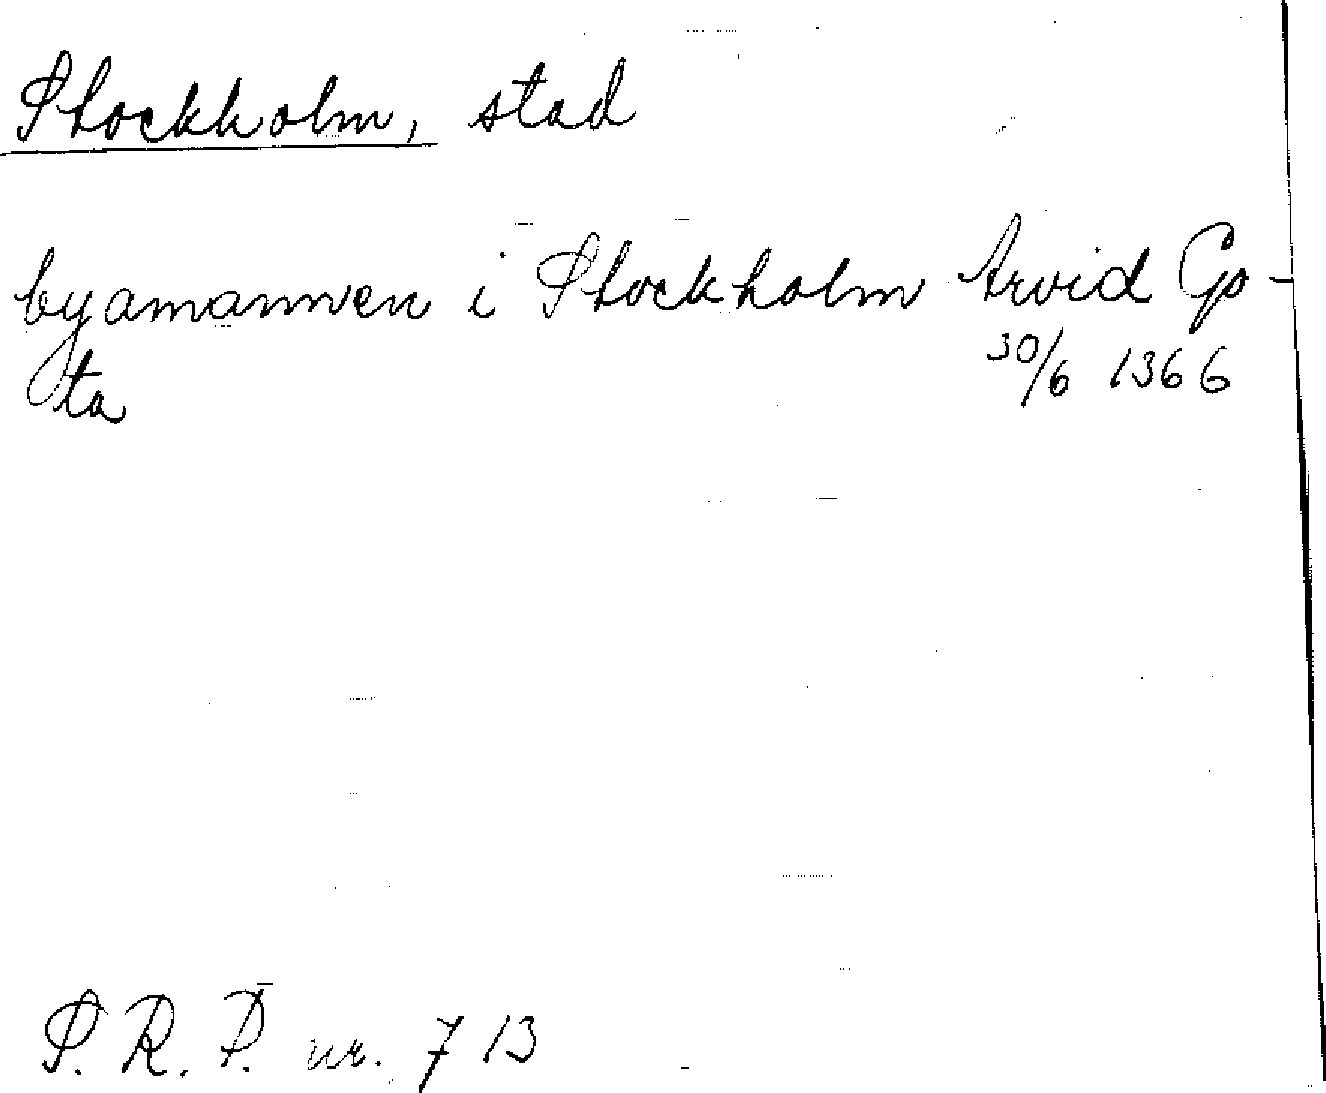 Stockholm, stad
byamannen i Stockholm Arvid Go-
ta 30/6 1366
S. R. P. nr. 713